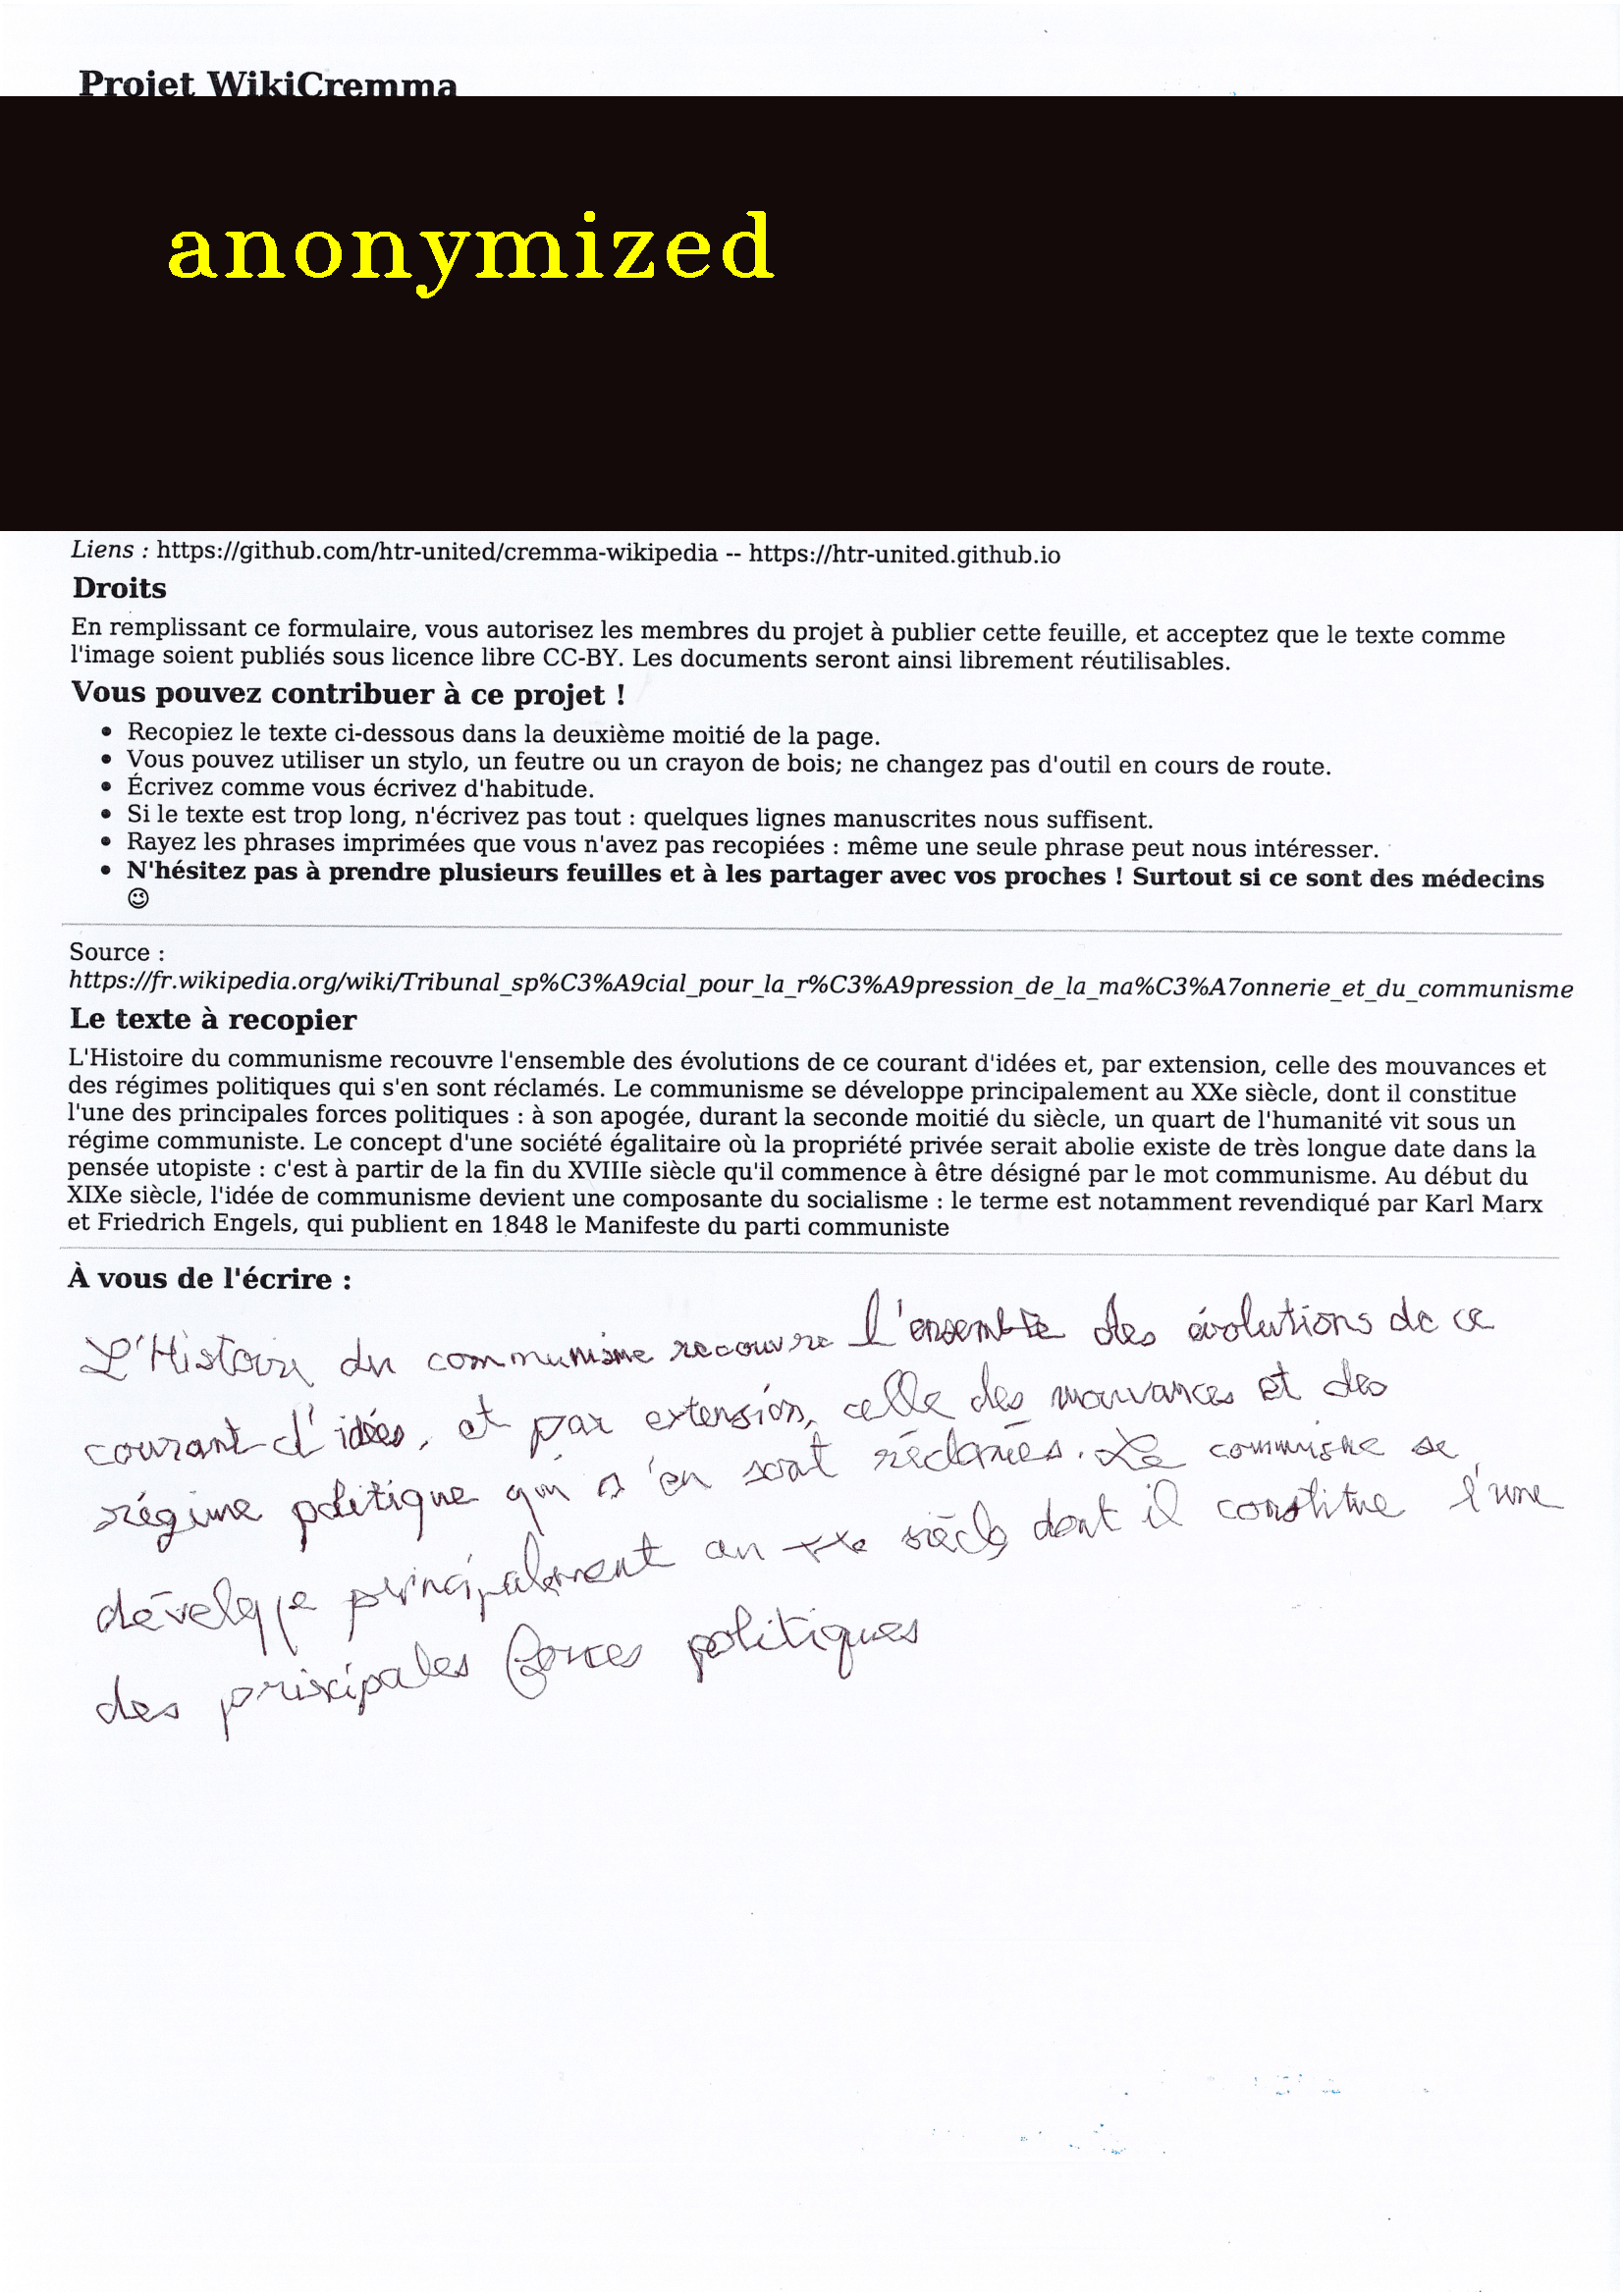 Projet WikiCremma
anonymized
Liens : https://github.com/htr-united/cremma-wikipedia -- https://htr-united.github.io
Droits
En remplissant ce formulaire, vous autorisez les membres du projet à publier cette feuille, et acceptez que le texte comme
l'image soient publiés sous licence libre CC-BY. Les documents seront ainsi librement réutilisables.
Vous pouvez contribuer à ce projet !
• Recopiez le texte ci-dessous dans la deuxième moitié de la page.
• Vous pouvez utiliser un stylo, un feutre ou un crayon de bois; ne changez pas d'outil en cours de route.
• Écrivez comme vous écrivez d'habitude.
• Si le texte est trop long, n'écrivez pas tout : quelques lignes manuscrites nous suffisent.
• Rayez les phrases imprimées que vous n'avez pas recopiées : même une seule phrase peut nous intéresser.
• N'hésitez pas à prendre plusieurs feuilles et à les partager avec vos proches ! Surtout si ce sont des médecins
☺
Source :
https://fr.wikipedia.org/wiki/Tribunal_sp%C3%A9cial_pour_la_r%C3%A9pression_de_la_ma%C3%A7onnerie_et_du_communisme
Le texte à recopier
L'Histoire du communisme recouvre l'ensemble des évolutions de ce courant d'idées et, par extension, celle des mouvances et
des régimes politiques qui s'en sont réclamés. Le communisme se développe principalement au XXe siècle, dont il constitue
l'une des principales forces politiques : à son apogée, durant la seconde moitié du siècle, un quart de l'humanité vit sous un
régime communiste. Le concept d'une société égalitaire où la propriété privée serait abolie existe de très longue date dans la
pensée utopiste : c'est à partir de la fin du XVIIIe siècle qu'il commence à être désigné par le mot communisme. Au début du
XIXe siècle, l'idée de communisme devient une composante du socialisme : le terme est notamment revendiqué par Karl Marx
et Friedrich Engels, qui publient en 1848 le Manifeste du parti communiste
À vous de l'écrire :
L'Histoire du communisme recouvre l'ensemble des évolutions de ce
courant d'idées, et par extension, celle des mouvances et des
régime politique qui s'en sont réclamés. Le commisme se
développe principalement au XXe siècle dont il constitue l'une
des principales forces politiques